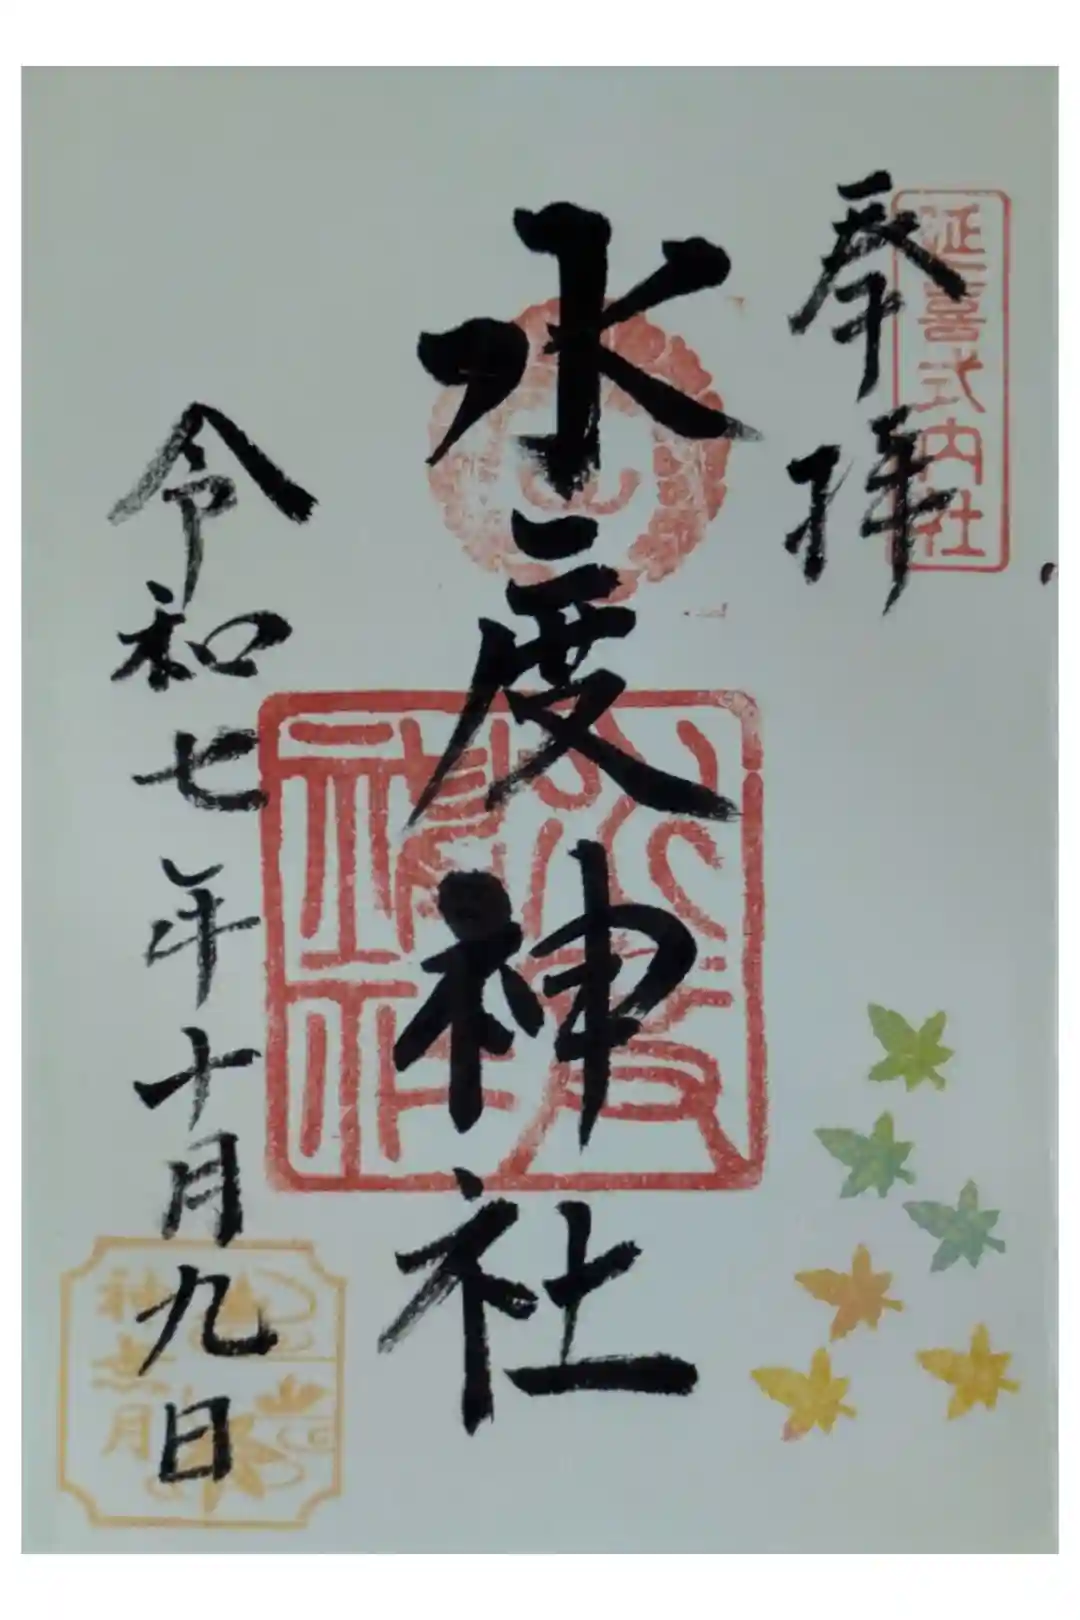 延喜式内社
奉拝
水度神社
水度神社
令和七年十月九日
神無月